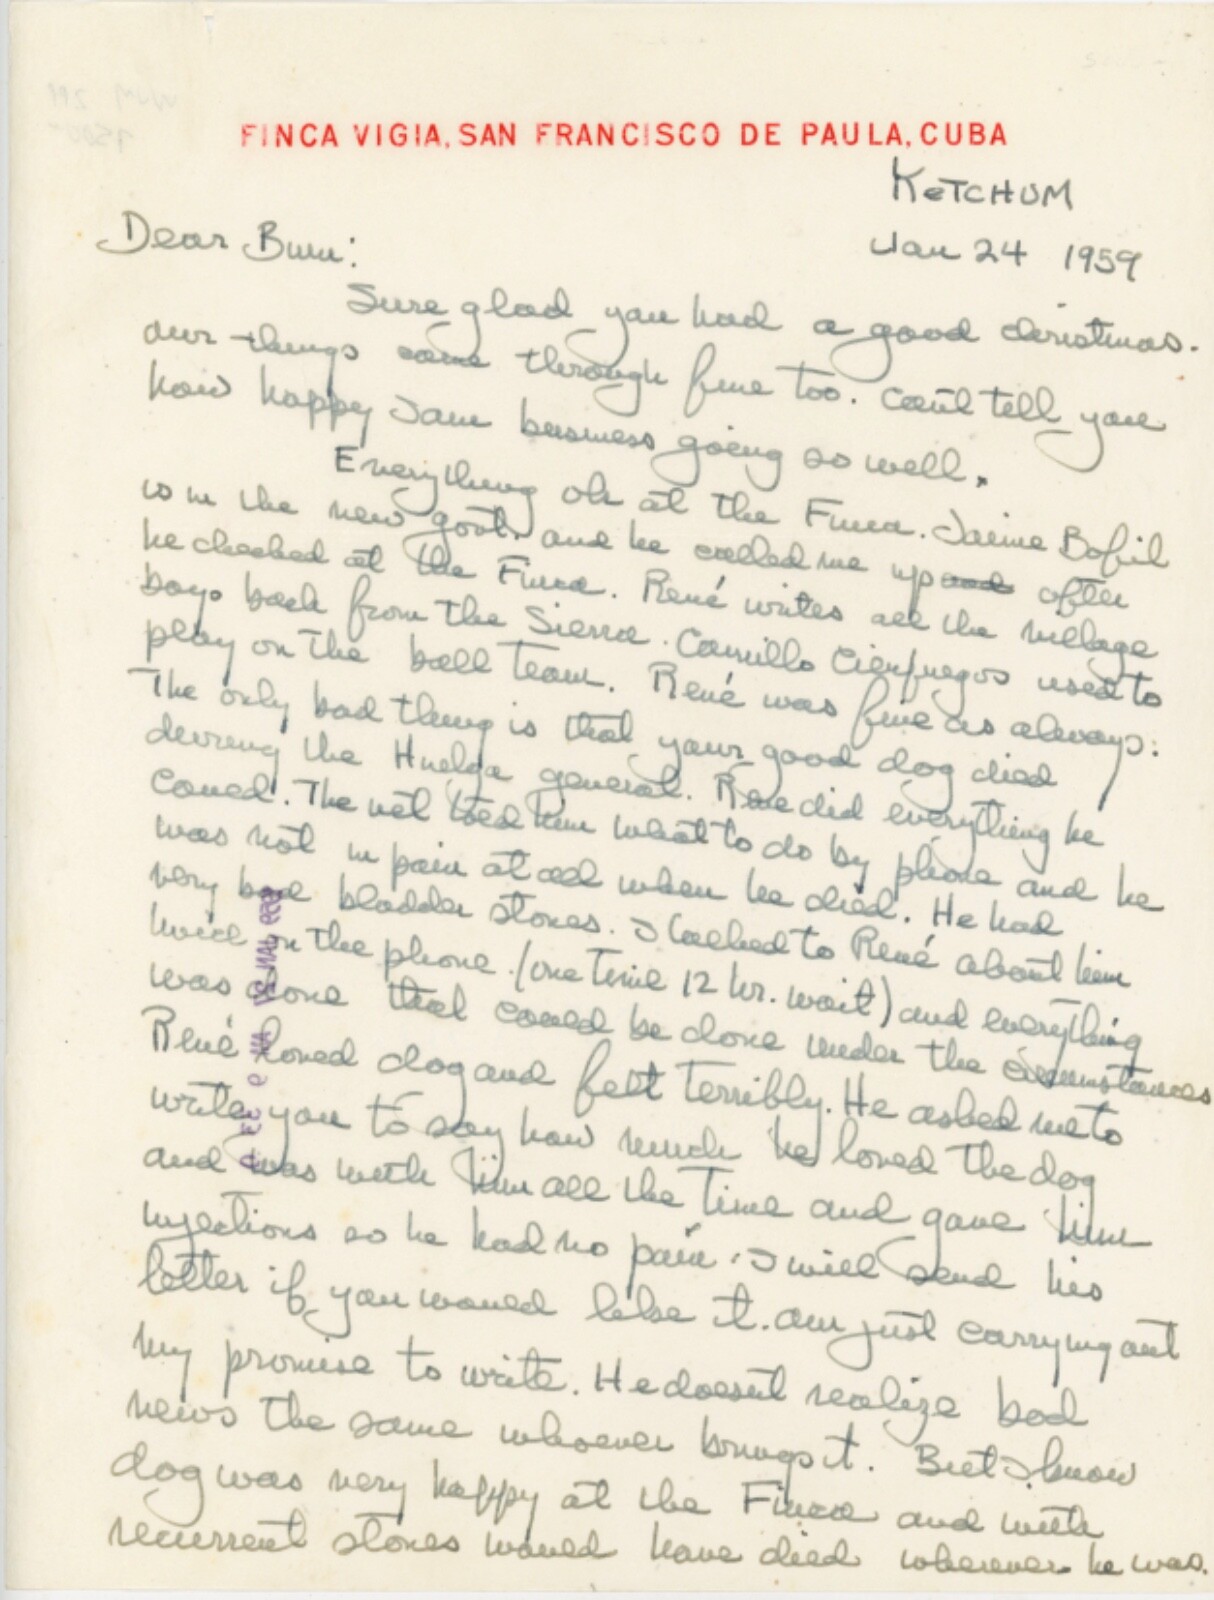 FINCA VIGIA, SAN FRANCISCO DE PAULA, CUBA
KETCHUM
Jan 24 1959
Dear Bum:
Sure glad you had a good christmas.
our things came through fine too. Can't tell you
how happy I am business going so well.
Everything ok at the Finca. Jaime Bofil
is in the new govt. and he called me up after
he checked at the Finca. René writes all the village
boys back from the Sierra. Camillo Cienfuegos used to
play on the ball team. René was fine as always.
The only bad thing is that your good dog died
during the Huelga general. Rene did everything he
could. The vet told him what to do by phone and he
was not in pain at all when he died. He had
very bad bladder stones. I talked to René about him
twice on the phone. (one time 12 hr. wait) and everything
was done that could be done under the circumstances
René loved dog and felt terribly. He asked me to
write you to say how much he loved the dog
and was with him all the time and gave him
injections so he had no pain. I will send his
letter if you would like it. am just carrying out
my promise to write. He doesn't realize bad
news the same whoever brings it. But I know
dog was very happy at the Finca and with
recurrent stones would have died wherever he was.